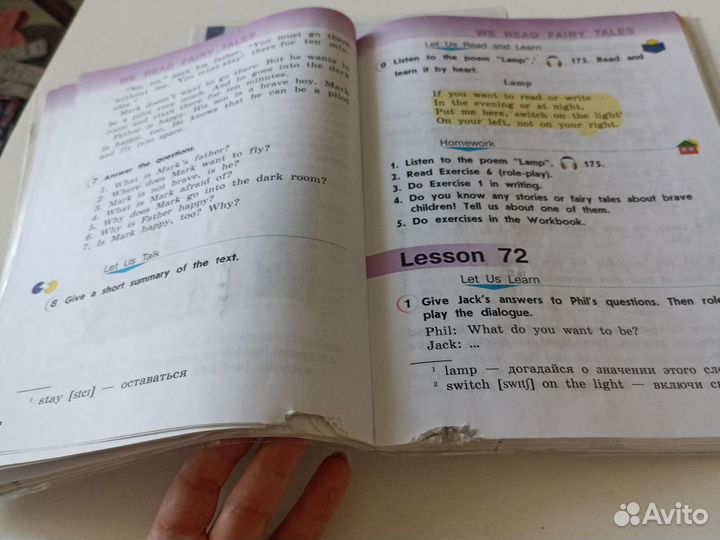 WE READ FAIRY TALES
"No, no," says his father. "You must go there
without me. You must stay¹ there for ten min
utes."
Mark doesn't want to go there. But he wants to
be a pilot very much. And he goes into the dark
room and stays there for ten minutes.
Father is happy. His son is a brave boy. Mark
is happy, too. He knows that he can be a pilot
and fly into space.
7 Answer the questions.
1. What is Mark's father?
2. Where does Mark want to fly?
3. Mark is not brave, is he?
4. What is Mark afraid of?
5. Why does Mark go into the dark room?
6. Why is Father happy?
7. Is Mark happy, too? Why?
Let Us Talk
8 Give a short summary of the text.
¹ stay [steɪ] — оставаться
WE READ FAIRY TALES
Let Us Read and Learn
9 Listen to the poem "Lamp", 175. Read and
learn it by heart.
Lamp
If you want to read or write
In the evening or at night,
Put me here, switch on the light²
On your left, not on your right.
Homework
1. Listen to the poem "Lamp", 175.
2. Read Exercise 6 (role-play).
3. Do Exercise 1 in writing.
4. Do you know any stories or fairy tales about brave
children? Tell us about one of them.
5. Do exercises in the Workbook.
Lesson 72
Let Us Learn
1 Give Jack's answers to Phil's questions. Then role
play the dialogue.
Phil: What do you want to be?
Jack: ...
¹ lamp — догадайся о значении этого сло
² switch [swɪtʃ] on the light — включи св
Avito